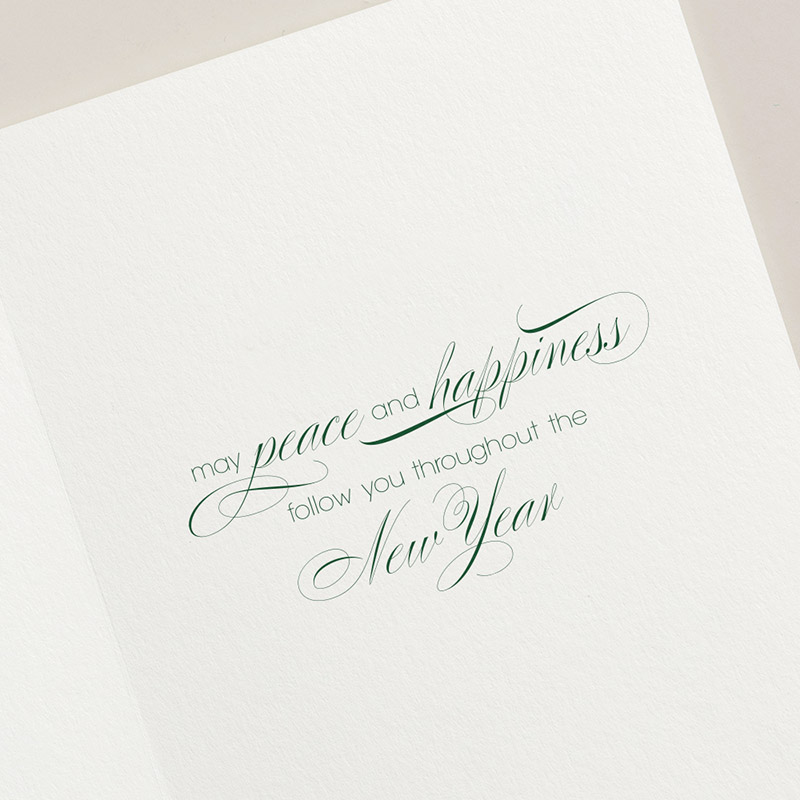 may peace and happiness
follow you throughout the
New Year